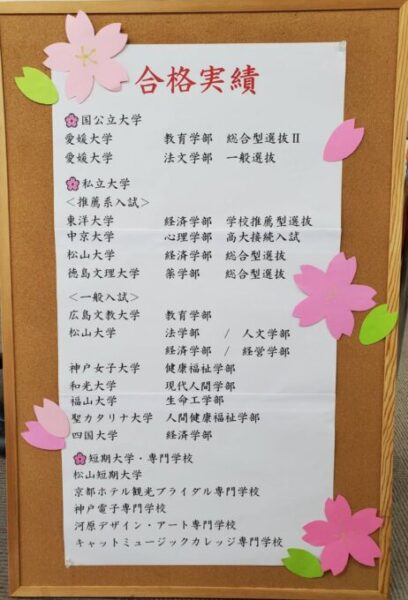 合格実績
国公立大学
愛媛大学 教育学部 総合型選抜Ⅱ
愛媛大学 法文学部 一般選抜
私立大学
＜推薦系入試＞
東洋大学 経済学部 学校推薦型選抜
中京大学 心理学部 高大接続入試
松山大学 経済学部 総合型選抜
徳島文理大学 薬学部 総合型選抜
＜一般入試＞
広島文教大学 教育学部
松山大学 法学部 / 人文学部
経済学部 / 経営学部
神戸女子大学 健康福祉学部
和光大学 現代人間学部
福山大学 生命工学部
聖カタリナ大学 人間健康福祉学部
四国大学 経済学部
短期大学・専門学校
松山短期大学
京都ホテル観光ブライダル専門学校
神戸電子専門学校
河原デザイン・アート専門学校
キャットミュージックカレッジ専門学校